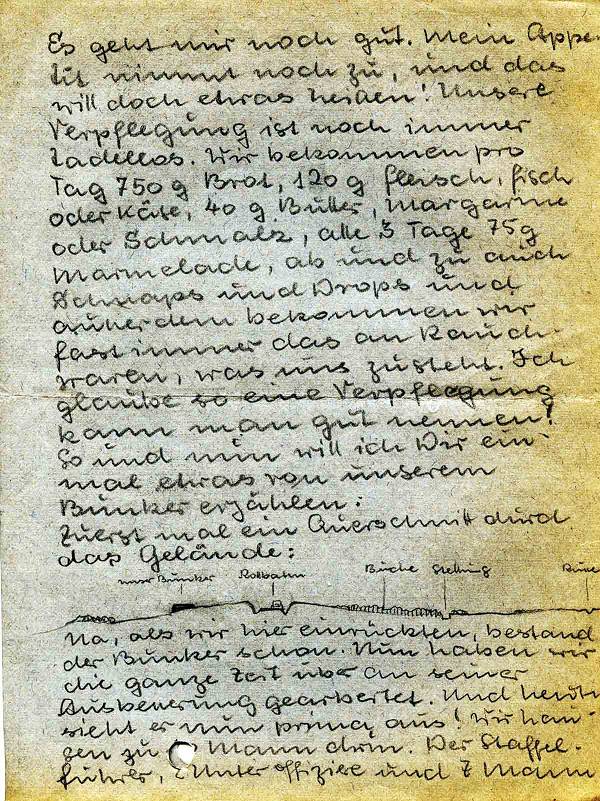 Es geht mir noch gut. Mein Appe-
tit nimmt noch zu, und das
will doch etwas heißen! Unsere
Verpflegung ist noch immer
tadellos. Wir bekommen pro
Tag 750 g Brot, 120 g Fleisch, Fisch
oder Käse, 40 g Butter, Margarine
oder Schmalz, alle 3 Tage 75 g
Marmelade, ab und zu auch
Schnaps und Drops und
außerdem bekommen wir
fast immer das an Rauch-
waren, was uns zusteht. Ich
glaube so eine Verpflegung
kann man gut nennen!
So und nun will ich Dir ein-
mal etwas von unserem
Bunker erzählen:
Zuerst mal ein Querschnitt durch
das Gelände:
unser Bunker Rollbahn Büsche Stellung
Na, als wir hier einrückten, bestand
der Bunker schon. Nun haben wir
die ganze Zeit über an seiner
Ausbeuerung gearbeitet. Und heute
sieht er nun prima aus! Wir hau-
sen zu Mann drin. Der Staffel-
führer, 2 Unteroffiziere und 7 Mann